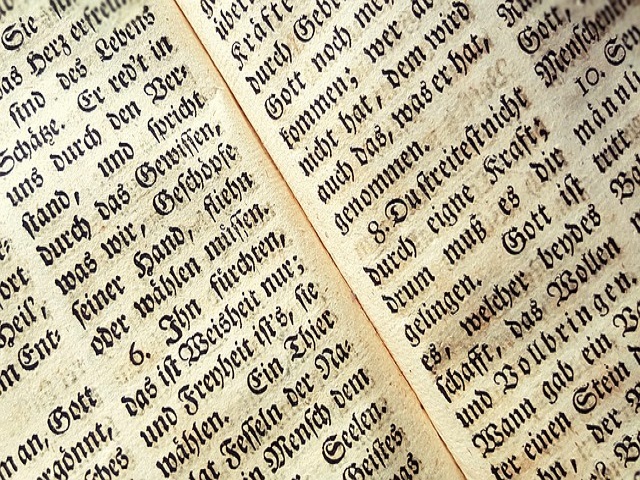 Sie
das Herz erfreun
sind des Lebens
Schätze. Er red't in
uns durch den Ver-
stand, und spricht
durch das Gewissen,
was wir, Geschöpfe
seiner Hand, fliehn
oder wählen müssen.
6. Ihn fürchten,
das ist Weisheit nur;
und Freyheit ists, sie
wählen. Ein Thier
Fesseln der Na-
Mensch dem
Seelen.
Geistes
ort
Heil,
Ent-
man, Gott
ergönnt,
Kräfte
durch Gebet
Gott noch
kommen; wer da
nicht hat, dem wird
auch das, was er hat,
genommen.
8. Du streitest nicht
durch eigne Kraft;
drum muß es dir
gelingen. Gott ist
es, welcher beydes
schafft, das Wollen
und Vollbringen.
Wann gab ein
ter einen Stein
der
Gott,
Menschen
10.